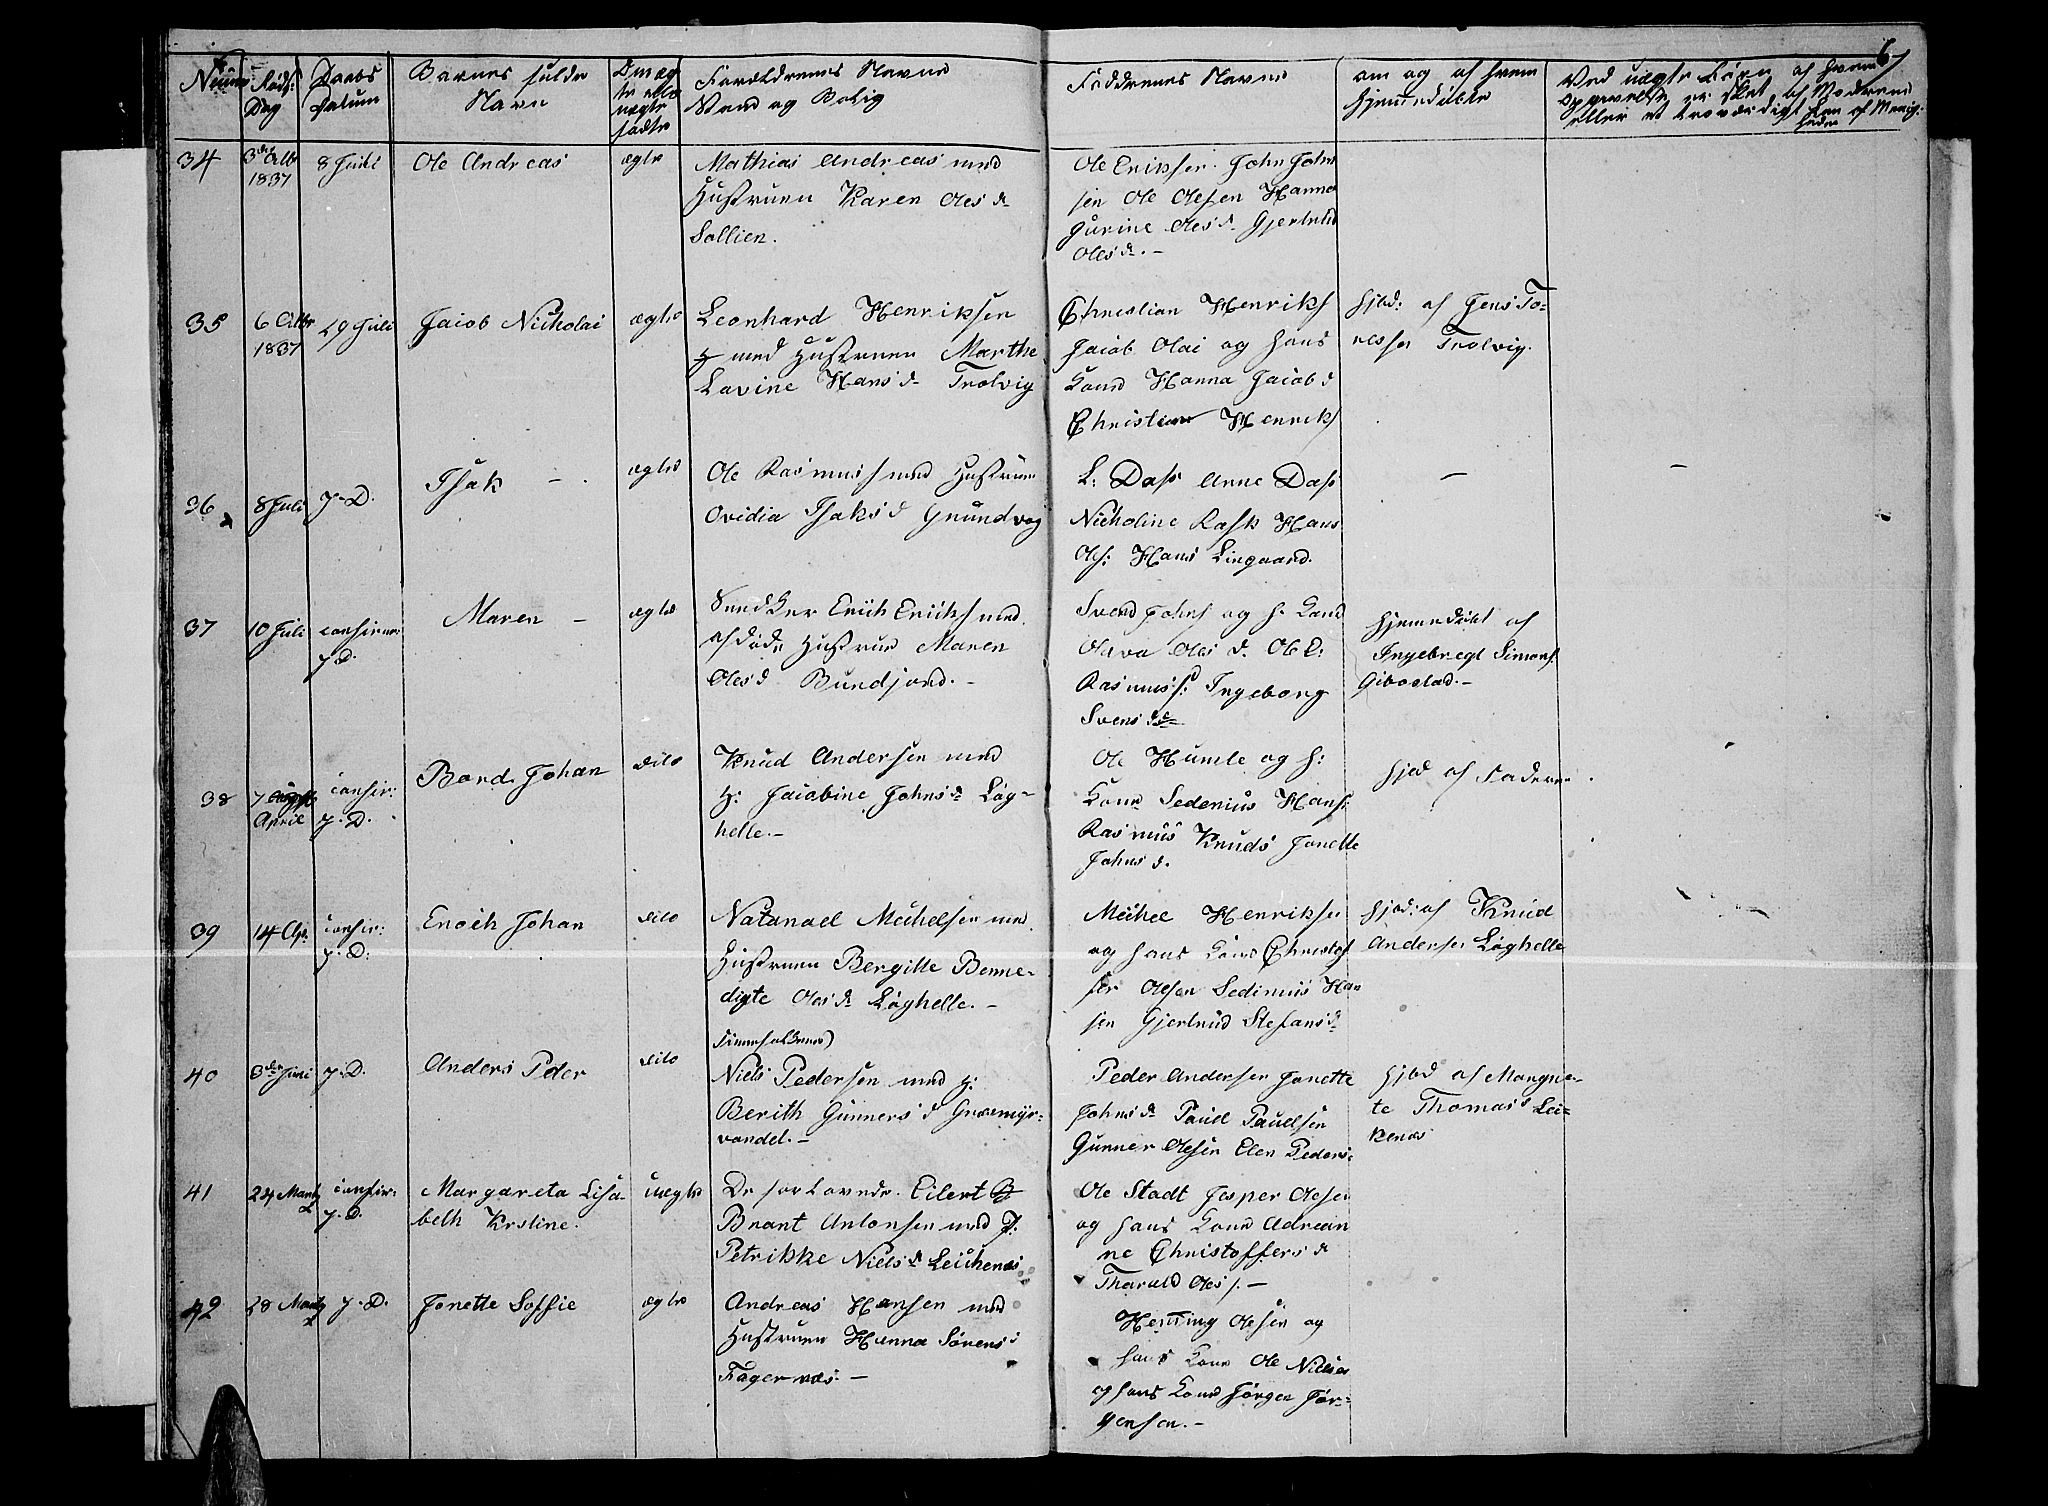 6
Numer
Føds: Dag
Daabs Datum
Barnes fulde Navn
Om ægte eller uægte fødte
Forældrenes Navne Stand og Bolig
Faddrenes Navne
om og af hvem hjemmedøbte
Ved uægte Børn af hvem Opgivelse er skeet af Moderen eller et troværdigt
34
3die Octbr 1837
8 Juli
Ole Andreas
ægte
Mathias Andreas med
Hustruen Karen Oles d
Sollien.
Ole Eriksen John John
sen Ole Olesen Hanna
Gurine Oles d Gjertrud
Oles d. -
35
6 Octbr 1837
29 Juli
Jacob Nicholai
ægte
Leonhard Henriksen
med Hustruen Marthe
Lavine Hans d Trolvig
Christian Henriks
Jacob Olai og hans
Kone Hanna Jacob d
Henriks
Hjød: af Jens To-
Trolvig.
36
8 Juli
J. D.
Isak -
ægte
Ole Rasmuss med Hustrue
Ovidia Isaks d Grundvog
L: Dass Anne Dass
Nicholine Rask Hans
Ols: Hans Lingaard.
-
-
37
10 Juli
confirm: J. D.
Maren -
ægte
Erich Eriks med
afdøde Hustrue Maren
Oles d Bundjord. -
Svend Johns og h. Kone
Olava Oles d. Ole
Rasmuss: Ingeborg
Svens d
Hjemmedøbt af
Ingebregt Simons
Gibostad. -
38
7 April
confir: J. D.
Bard Johan
dito
Knud Andersen med
H: Jacobine Johns d Løg-
helle. -
Ole Humle og h:
Kone Sedenius Hans:
Rasmus Knuds Janette
Johns d.
Hjød af Faderen
39
14 Ap.
confir: J. D.
Enoch Johan
dito
Natanael Michelsen med
Hustruen Bergitte Benne-
digte Oles d Løghelle. -
Michel Henriksen
og hans Kone Christof
fer Olesen Sedinius Han
sen Gjertrud Stefans d
Hjød: af Knud
Andersen Løghelle
40
3die Juni
J. D.
Anders Peder
dito
Niels Pedersen med H:
Berith Gunners d Græsmyr-
vandet. -
Peder Andersen Janette
Johns d Paul Paulsen
Gunner Olesen Elen Peders:
Hjød af Margre-
te Thomas Lei-
kenes
41
24 Marts
confir: J. D.
Margareta Lisa-
beth Krstine.
uægte
De forlovede. Eilert
Brant Antonsen med P:
Petrikke Niels d Leickenes
Ole Stadt Jesper Olesen
og hans Kone Adrean
ne Christoffers d
Tharald Oles. -
42
28 Marts
J. D.
Janette Soffie
ægte
Andreas Hansen med
Hustruen Hanna Sørens d
Fagernæs. -
Henning Olesen og
hans Kone Ole Nielsen
og hans Kone Jørgen Jør-
gensen. -